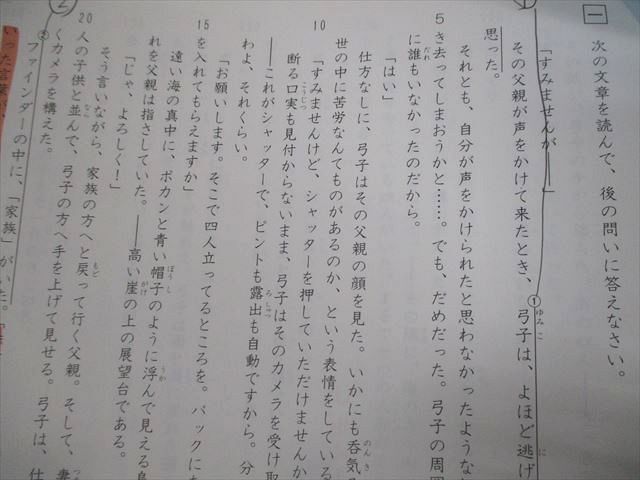 一 次の文章を読んで、後の問いに答えなさい。
「すみませんが――」
その父親が声をかけて来たとき、①弓子は、よほど逃げ
思った。
それとも、自分が声をかけられたと思わなかったような
5 き去ってしまおうかと……。でも、だめだった。弓子の周囲
に誰もいなかったのだから。
「はい」
仕方なしに、弓子はその父親の顔を見た。いかにも呑気
世の中に苦労なんてものがあるのか、という表情をしている
10 「すみませんけど、シャッターを押していただけませんか
断る口実も見付からないまま、弓子はそのカメラを受け取
――これがシャッターで、ピントも露出も自動ですから。分
わよ、それくらい。
「お願いします。そこで四人立ってるところを。バックにあ
15 を入れてもらえますか」
遠い海の真中に、ポカンと青い帽子のように浮んで見える島
れを父親は指さしていた。――高い崖の上の展望台である。
「じゃ、よろしく！」
そう言いながら、家族の方へと戻って行く父親。そして、妻
20 人の子供と並んで、弓子の方へ手を上げて見せる。弓子は、仕
くカメラを構えた。
②ファインダーの中に、「家族」がいた。
いった言葉が、